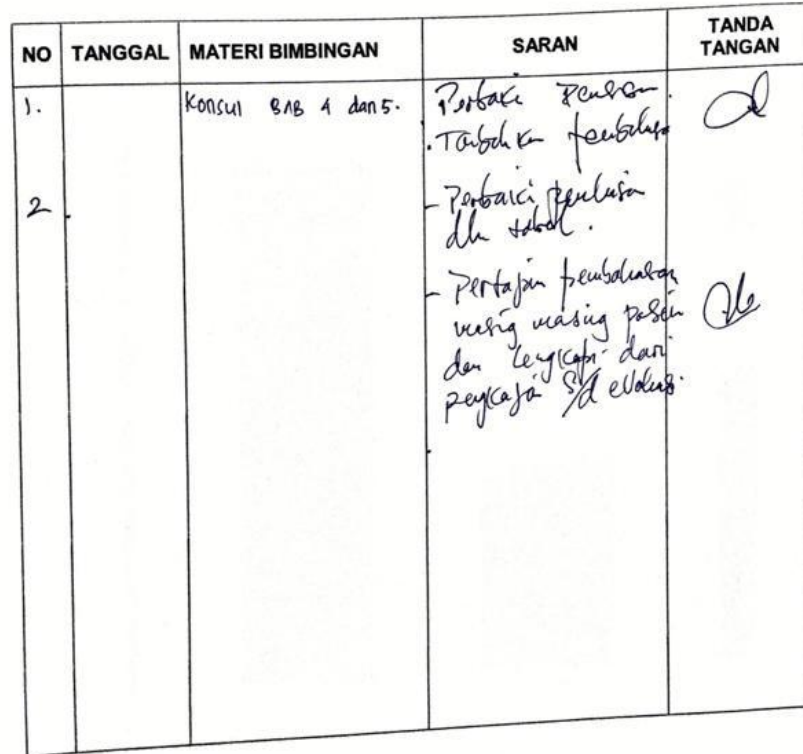 NO TANGGAL MATERI BIMBINGAN SARAN TANDA TANGAN
1. Konsul BAB 4 dan 5. Perbaiki
. Tambahkan pembahasan
2 - Perbaiki penulisan
dlm tabel.
- Pertajam pembahasan
masing masing pasien
dan lengkapi dari
pengkajian s/d evaluasi.